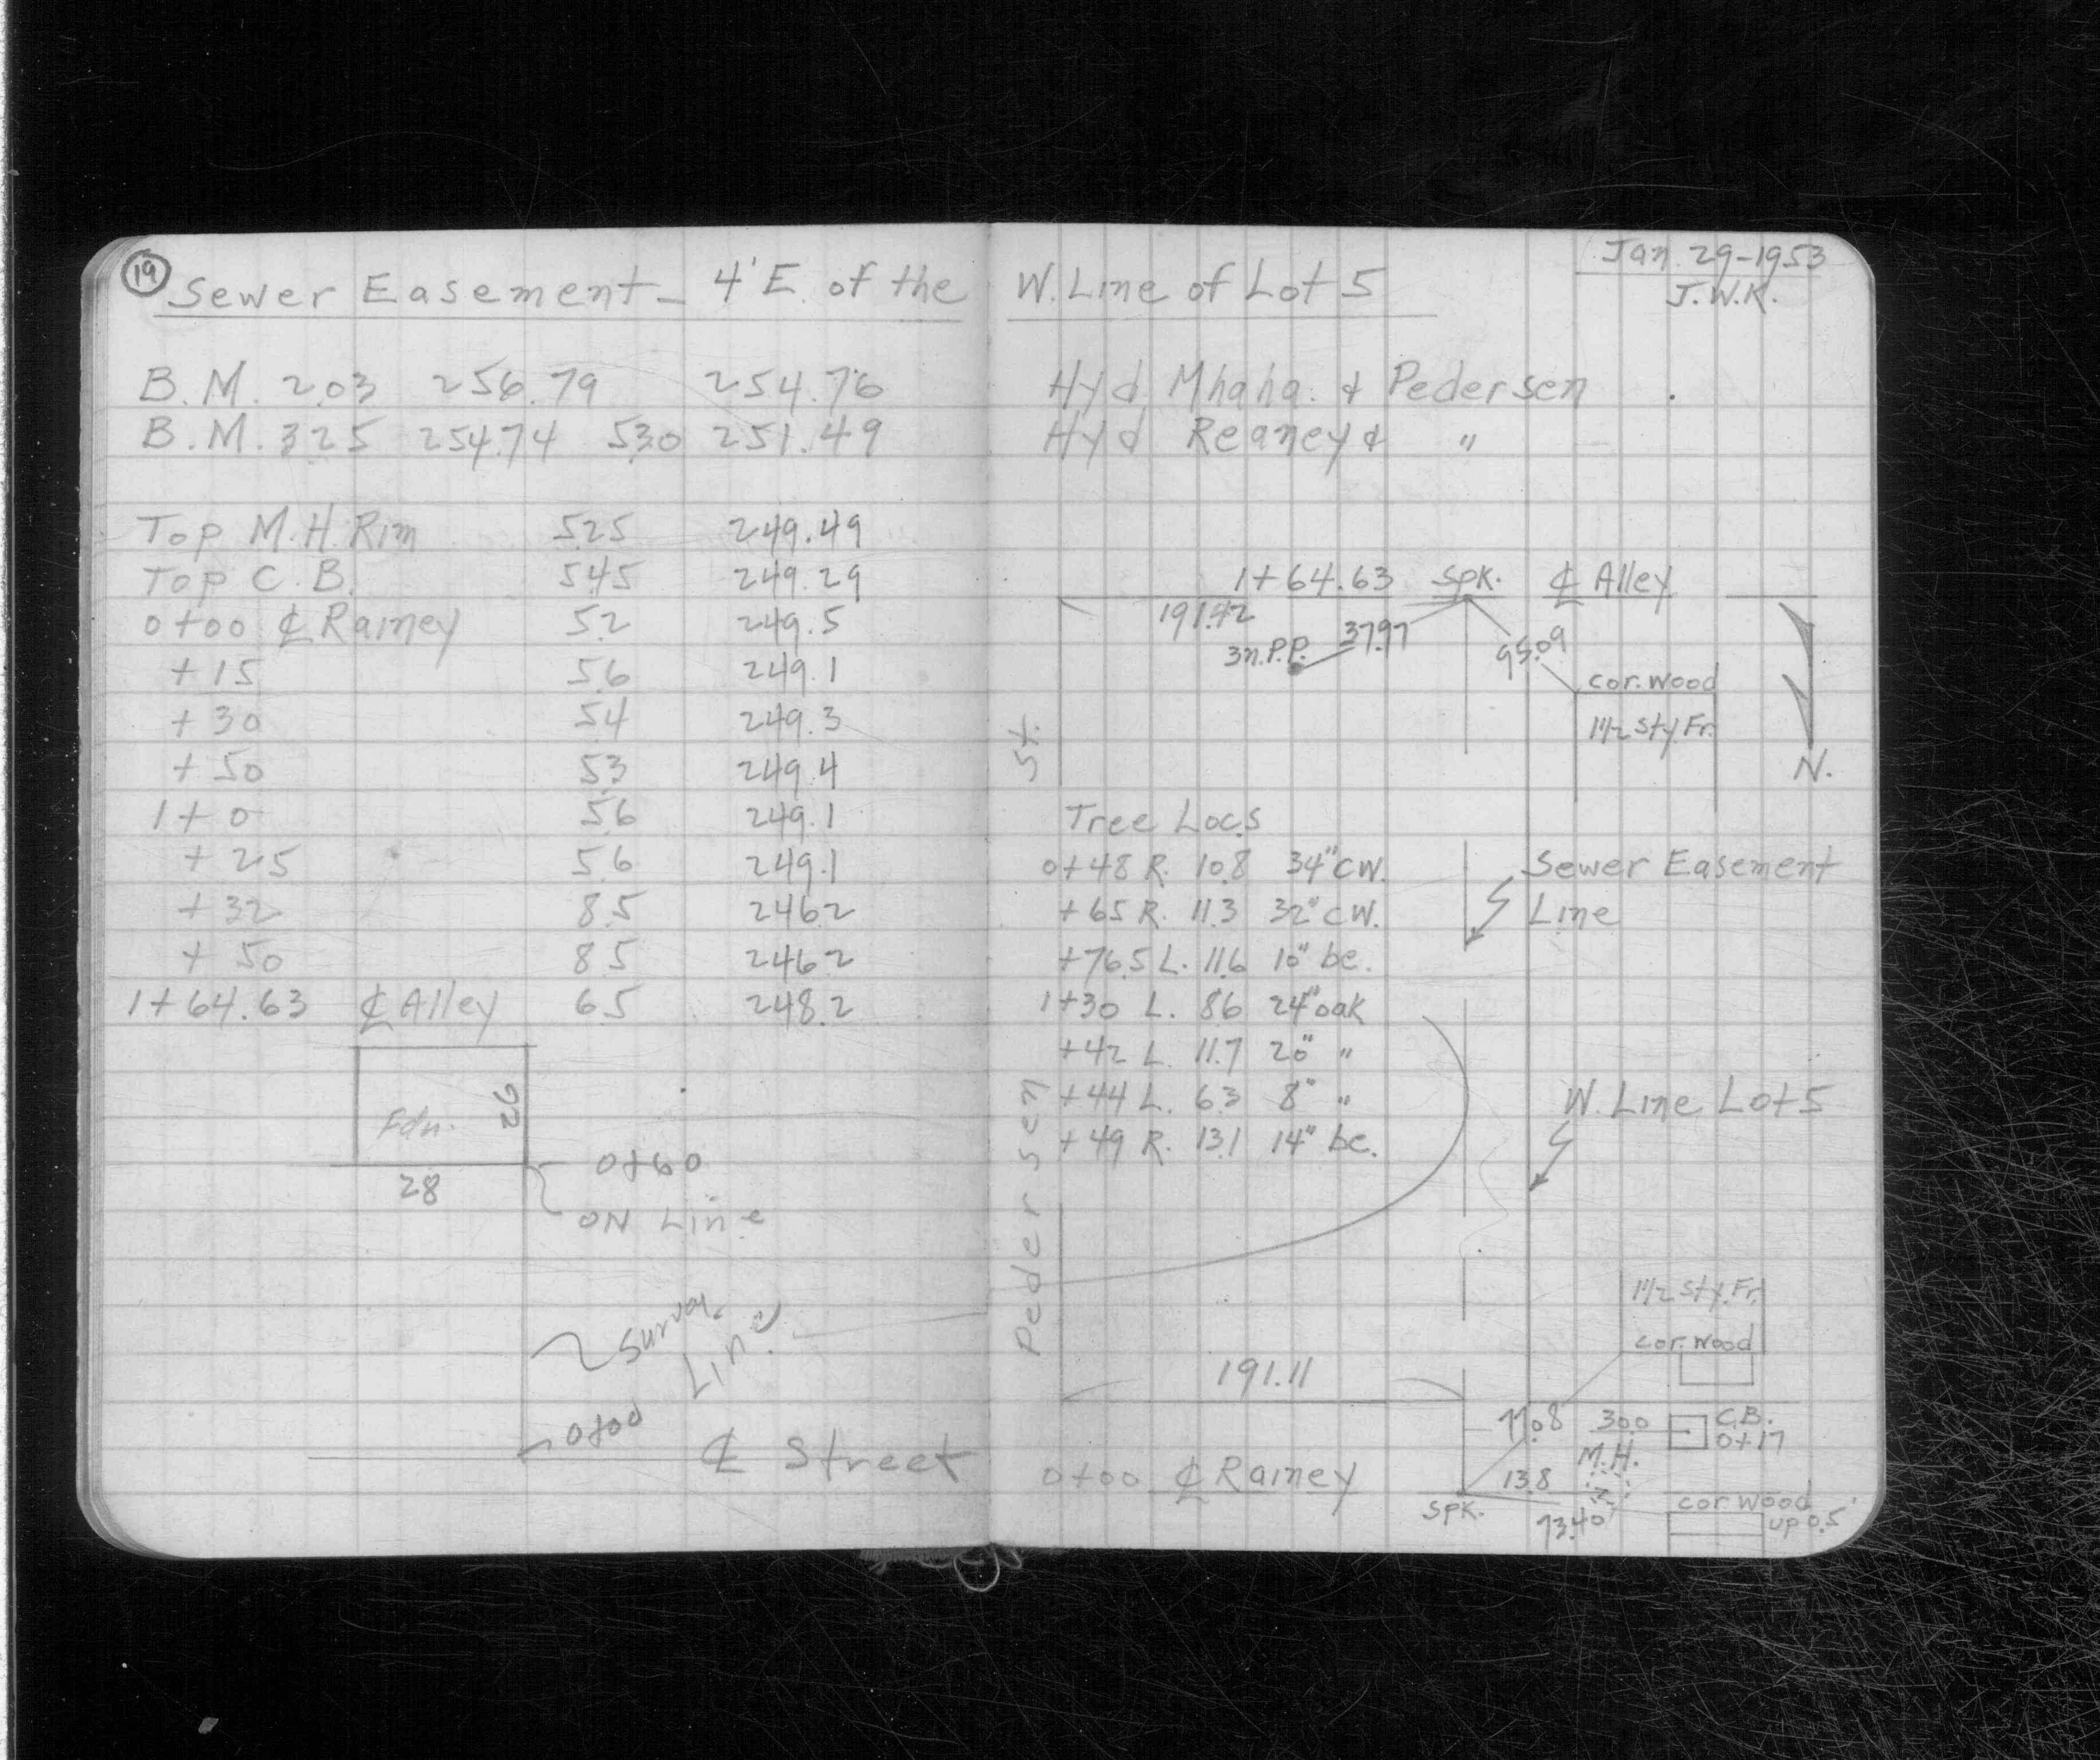 19
Sewer Easement - 4' E. of the W. Line of Lot 5
Jan. 29-1953
J.W.K.
B.M. 2.03 256.79 254.76 Hyd Mhaha. & Pedersen
B.M. 3.25 254.74 5.30 251.49 Hyd Reaney & "
Top M.H. Rim 5.25 249.49
Top C.B. 5.45 249.29
0+00 ℄ Rainey 5.2 249.5
+15 5.6 249.1
+30 5.4 249.3
+50 5.3 249.4
1+0 5.6 249.1
+25 5.6 249.1
+32 8.5 246.2
+50 8.5 246.2
1+64.63 ℄ Alley 6.5 248.2
Fdn.
22
28
0+60
ON Line
Survey
Line
0+00
℄ Street
1+64.63 SPK. ℄ Alley
191.42
3n. P.P. 37.97
95.09
cor. wood
1 1/2 Sty. Fr.
N.
Pedersen St.
Tree Locs
0+48 R. 10.8 34" CW.
+65 R. 11.3 32" CW.
+76.5 L. 11.6 10" be.
1+30 L. 8.6 24" oak
+42 L. 11.7 20" "
+44 L. 6.3 8" "
+49 R. 13.1 14" be.
Sewer Easement
Line
W. Line Lot 5
1 1/2 Sty. Fr.
cor. wood
191.11
30.0
C.B.
0+17
M.H.
13.8
0+00 ℄ Rainey
SPK.
73.40
cor wood
up 0.5'